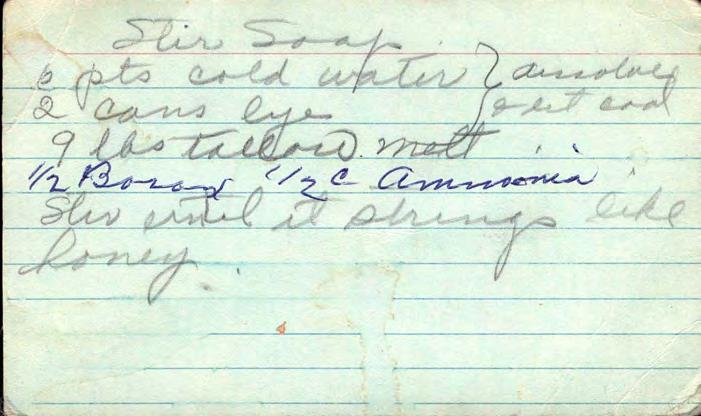 Stir Soap
6 pts cold water } dissolve
2 cans lye } & let cool
9 lbs tallow. melt
1/2 Borax 1/2 c Ammonia
Stir until it strings like
honey.